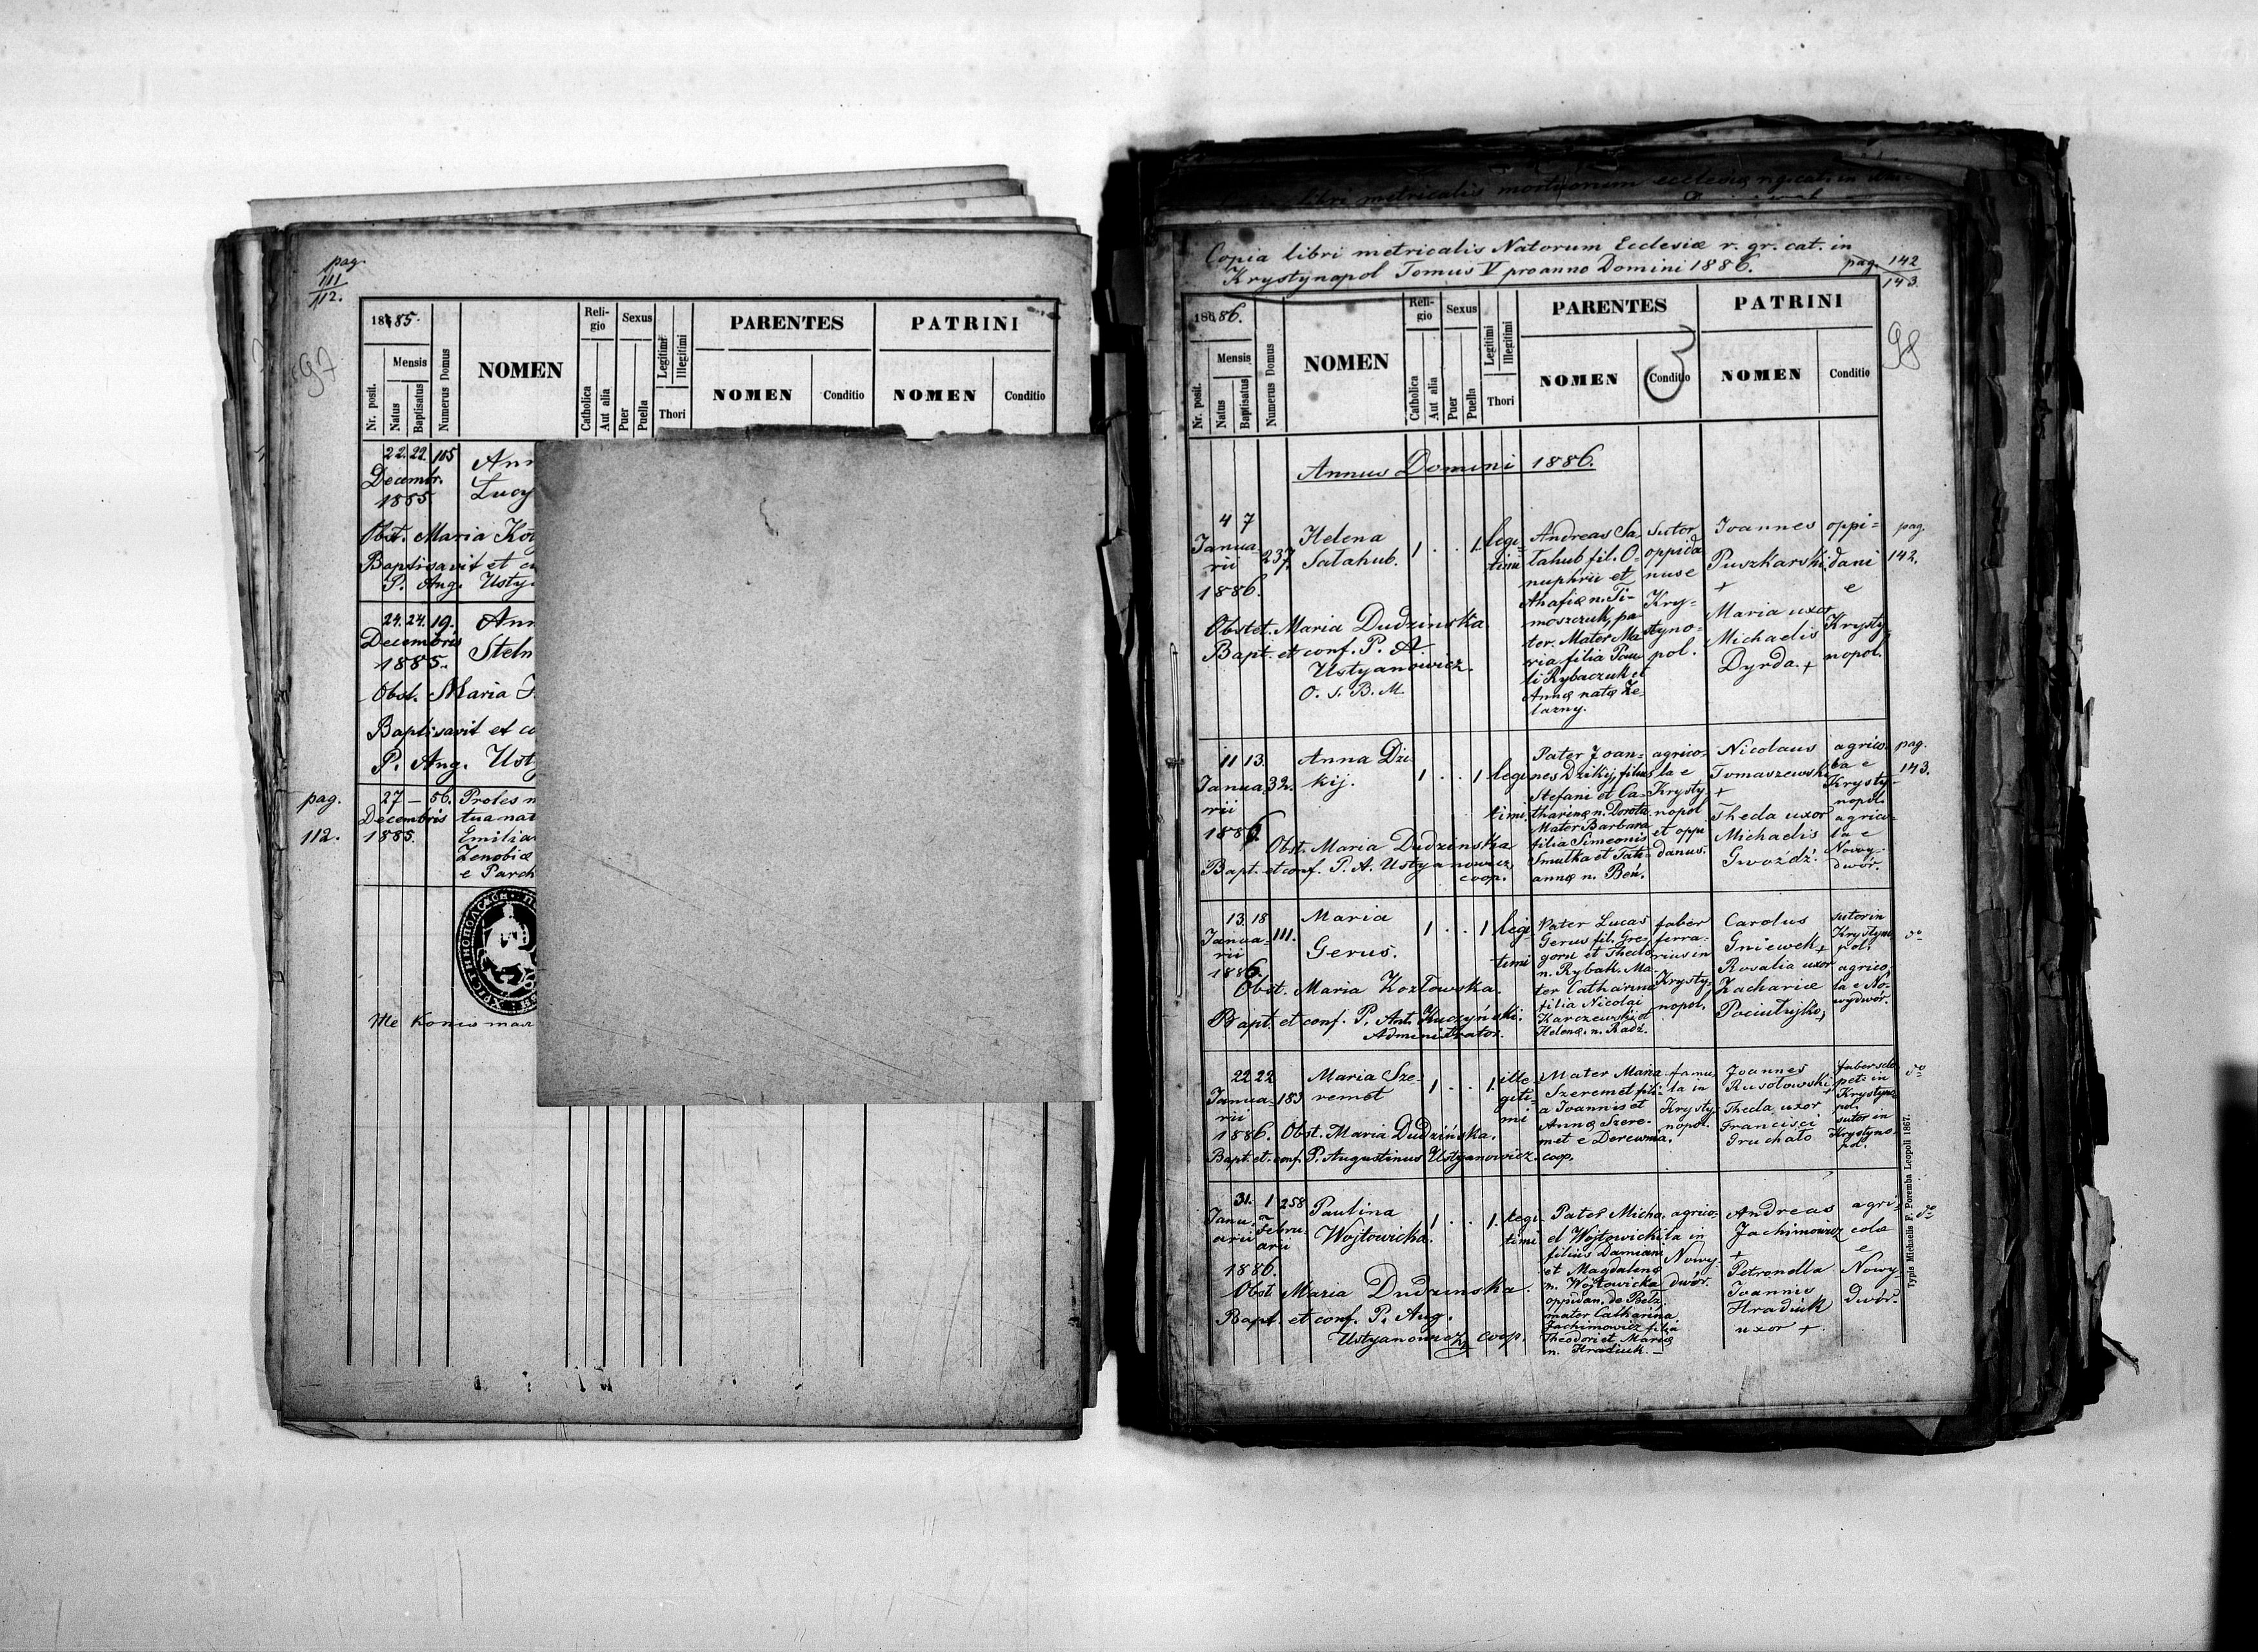 pag.
111
112.
97
1885.
Nr. posit.
Mensis
Natus
Baptisatus
Numerus Domus
NOMEN
Religio
Catholica
Aut alia
Sexus
Puer
Puella
Legitimi
Illegitimi
Thori
PARENTES
NOMEN
Conditio
PATRINI
NOMEN
Conditio
22. 22. 115
Decembr.
1885.
Obst. Maria
Baptisavit et
P. Aug.
24. 24. 19.
Decembris
1885.
Obst. Maria
Baptisavit et
P. Aug.
pag.
112.
27 – 56. Proles
Decembris
1885.
Zenobiæ
Copia libri metricalis Natorum Ecclesiæ r. gr. cat. in
Krystynopol Tomus V pro anno Domini 1886.
pag. 142
143.
98
1886.
Nr. posit.
Mensis
Natus
Baptisatus
Numerus Domus
NOMEN
Religio
Catholica
Aut alia
Sexus
Puer
Puella
Legitimi
Illegitimi
Thori
PARENTES
NOMEN
Conditio
PATRINI
NOMEN
Conditio
Annus Domini 1886.
4 7
Janua-
rii
1886.
237
Helena
Sałahub.
1 . . 1.
legi-
timi
Andreas Sa-
łahub fil. O-
nuphrii et
Ahafiæ n. Ti-
moszczuk, pa-
ter. Mater Ma-
ria filia Pau-
li Rybaczuk et
Annæ natæ Że-
lazny.
Sutor
oppida-
nus e
Kry-
styno-
pol.
Joannes
Puszkarski
+
Maria uxor
Michaelis
Dyrda. +
oppi=
dani
e
Krysty-
nopol.
pag.
142.
Obstet. Maria Dudzinska
Bapt. et conf. P. A.
Ustyanowicz.
O. S. B. M.
11 13.
Janua-
rii
1886.
32.
Anna Dzi-
kij.
1 . . 1
legi
timi.
Pater Joan=
nes Dzikij, filius
Stefani et Ca-
tharinæ n. Dorota
Mater Barbara
filia Simeonis
Smutka et Tati-
annæ n. Ben.
agrico-
la e
Krysty-
nopol
et oppi
danus.
Nicolaus
Tomaszewski
+
Theda uxor
Michaelis
Gwoźdź.
agrico-
la e
Krysty-
nopol.
agrico-
la e
Nowy-
dwór.
pag.
143.
Obst. Maria Dudzinska
Bapt. et conf. P. A. Ustyanowicz
coop.
13. 18
Janua-
rii
1886.
111.
Maria
Gerus.
1 . . 1
legi-
timi
Pater Lucas
Gerus fil. Gre-
gorii et Thedo
n. Rybak. Ma-
ter Catharina
filia Nicolai
Karczewski et
Helenæ n. Radz.
faber
ferra-
rius in
Krysty-
nopol.
Carolus
Gniewek +
Rosalia uxor
Zachariæ
sutor in
Krystyno
pol.
agrico-
la e No-
wydwór.
do
Obst. Maria Kozłowska.
Bapt. et conf. P. Ant. Kuczyński.
Administrator.
22 22
Janua-
rii
1886.
183
Maria Sze-
remet
1 . . 1.
ille-
giti-
mi
Mater Maria
Szeremet fili-
a Joannis et
Annæ Szere-
met e Derewnia.
famu-
la in
Krysty-
nopol.
Joannes
Rusołowski +
Theda uxor
Francisci
Gruchało
faber sclo
pet. in
Krystyno
pol.
sutor in
Krystyno-
pol.
do
Obst. Maria Dudzińska.
Bapt. et. conf. P. Augustinus Ustyanowicz coop.
31. 1
Janu-
arii
Febru-
arii
1886.
258
Paulina
Wojtowicka.
1 . . 1.
legi
timi
Pater Micha-
el Wojtowicki
filius Damiani
et Magdalenæ
n. Wojtowicka
oppidan. de Bełz
mater Catharina
Jachimowicz filia
Theodori et Mariæ
n. Hradiuk. –
agrico-
la in
Nowy-
dwór.
Andreas
Jachimowicz
+
Petronella
Joannis
Hradiuk
uxor +
agri-
colæ
e
Nowy-
dwór.
do
Obst. Maria Dudzinska.
Bapt. et conf. P. Aug.
Ustyanowicz coop.
Typis Michaelis F. Poremba Leopoli 1867.